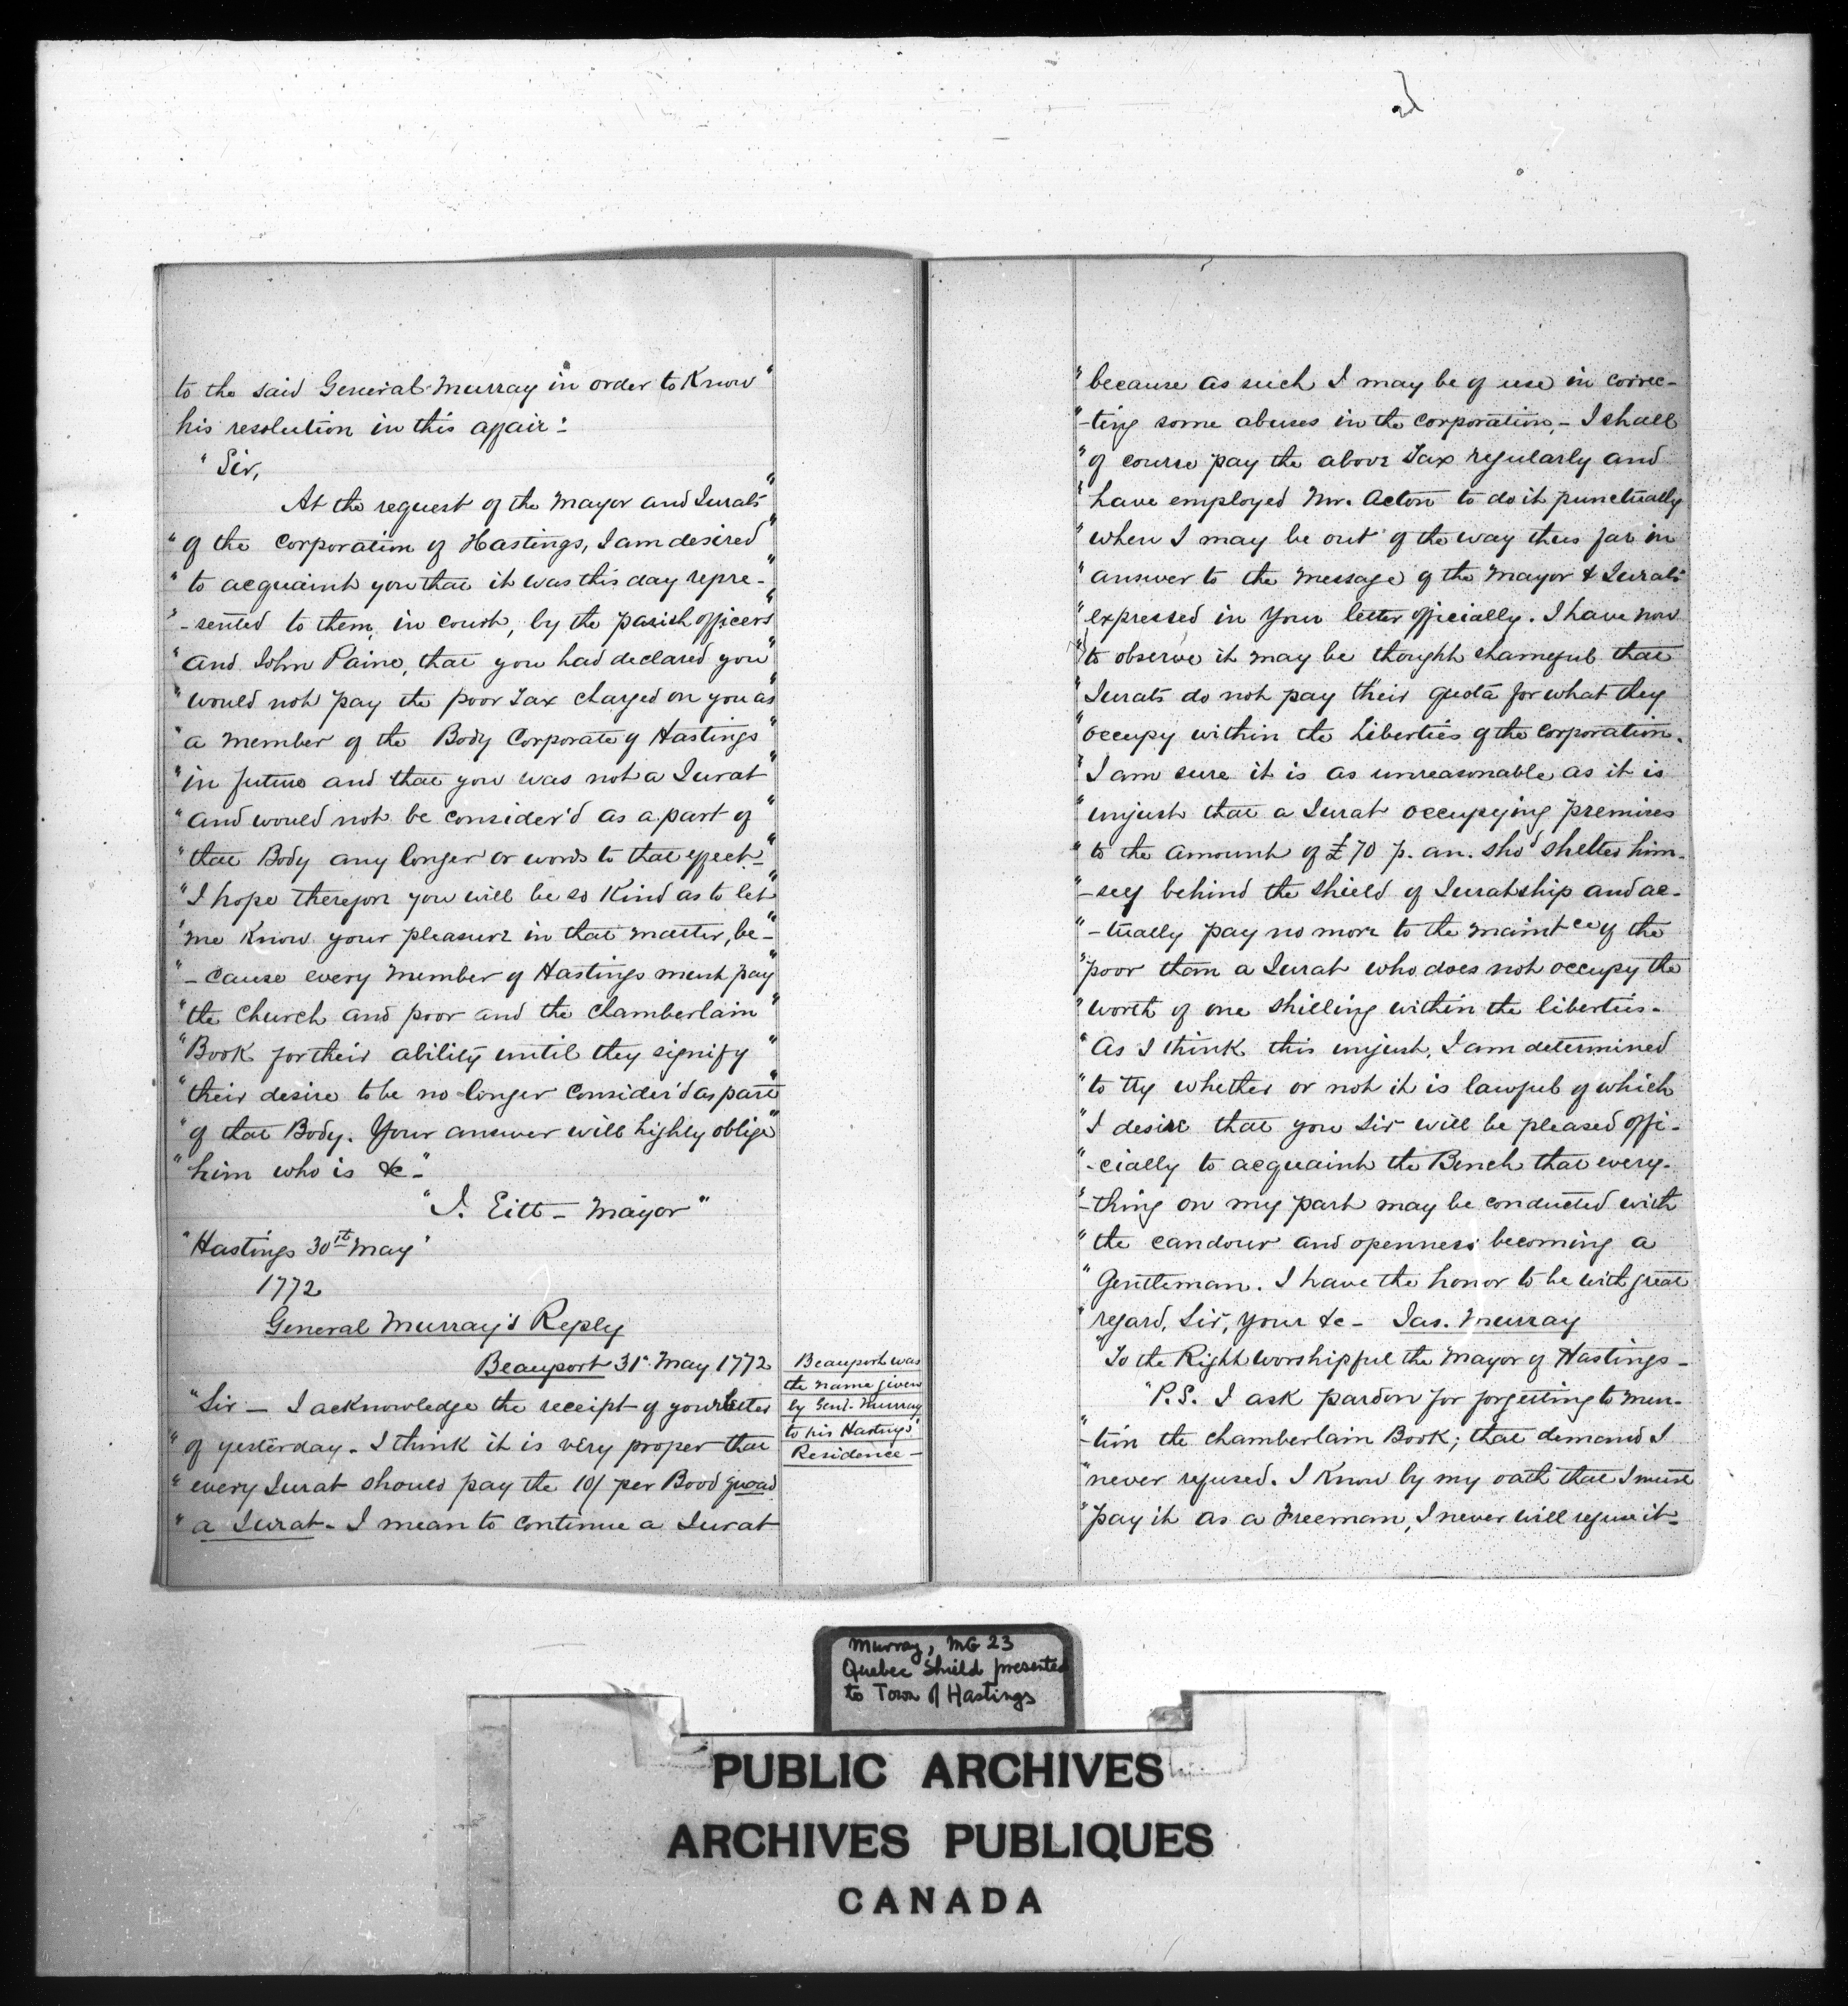 to the said General Murray in order to Know"
his resolution in this affair:
"Sir,
At the request of the Mayor and Jurats"
"of the Corporation of Hastings, I am desired"
"to acquaint you that it was this day repre-"
"-sented to them, in court, by the parish officers"
"and John Paine, that you had declared you"
"would not pay the poor Tax charged on you as"
"a member of the Body Corporate of Hastings"
"in future and that you was not a Jurat"
"and would not be consider'd as a part of"
"that Body any longer or words to that effect-"
"I hope therefore you will be so Kind as to let"
"me Know your pleasure in that matter, be-"
"-cause every Member of Hastings must pay"
"the Church and poor and the Chamberlain"
"Book for their ability until they signify"
"their desire to be no longer consider'd as part"
"of that Body. Your answer will highly oblige"
"him who is &c-"
"J. Eitt - Mayor"
"Hastings 30th May"
1772
General Murray's Reply
Beauport 31st May 1772
"Sir - I acknowledge the receipt of your Letter
"of yesterday. I think it is very proper that
"every Jurat should pay the 10/ per Bood quoad
"a Jurat. I mean to continue a Jurat
Beauport was
the name given
by Genl. Murray
to his Hastings
Residence -
"because as such I may be of use in correc-
"-ting some abuses in the corporation, - I shall
"of course pay the above Tax regularly and
"have employed Mr. Acton to do it punctually
"when I may be out of the way thus far in
"answer to the Message of the Mayor & Jurats
"expressed in Your letter officially. I have now
"to observe it may be thought shameful that
"Jurats do not pay their quota for what they
"occupy within the Liberties of the Corporation.
"I am sure it is as unreasonable as it is
"unjust that a Jurat occupying premises
"to the amount of £70 p. an. shod shelter him-
"-self behind the shield of Juratship and ac-
"-tually pay no more to the maintce of the
"poor than a Jurat who does not occupy the
"worth of one shilling within the liberties.
"As I think this unjust, I am determined
"to try whether or not it is lawful of which
"I desire that you Sir will be pleased offi-
"-cially to acquaint the Bench that every-
"-thing on my part may be conducted with
"the candour and openness becoming a
"Gentleman. I have the honor to be with great
"regard, Sir, your &c - Jas. Murray
"To the Right worshipful the Mayor of Hastings -
"P.S. I ask pardon for forgetting to men-
"-tion the Chamberlain Book; that demand I
"never refused. I Know by my oath that I must
"pay it as a Freeman, I never will refuse it-
Murray, MG 23
Quebec Shield presented
to Town of Hastings
PUBLIC ARCHIVES
ARCHIVES PUBLIQUES
CANADA